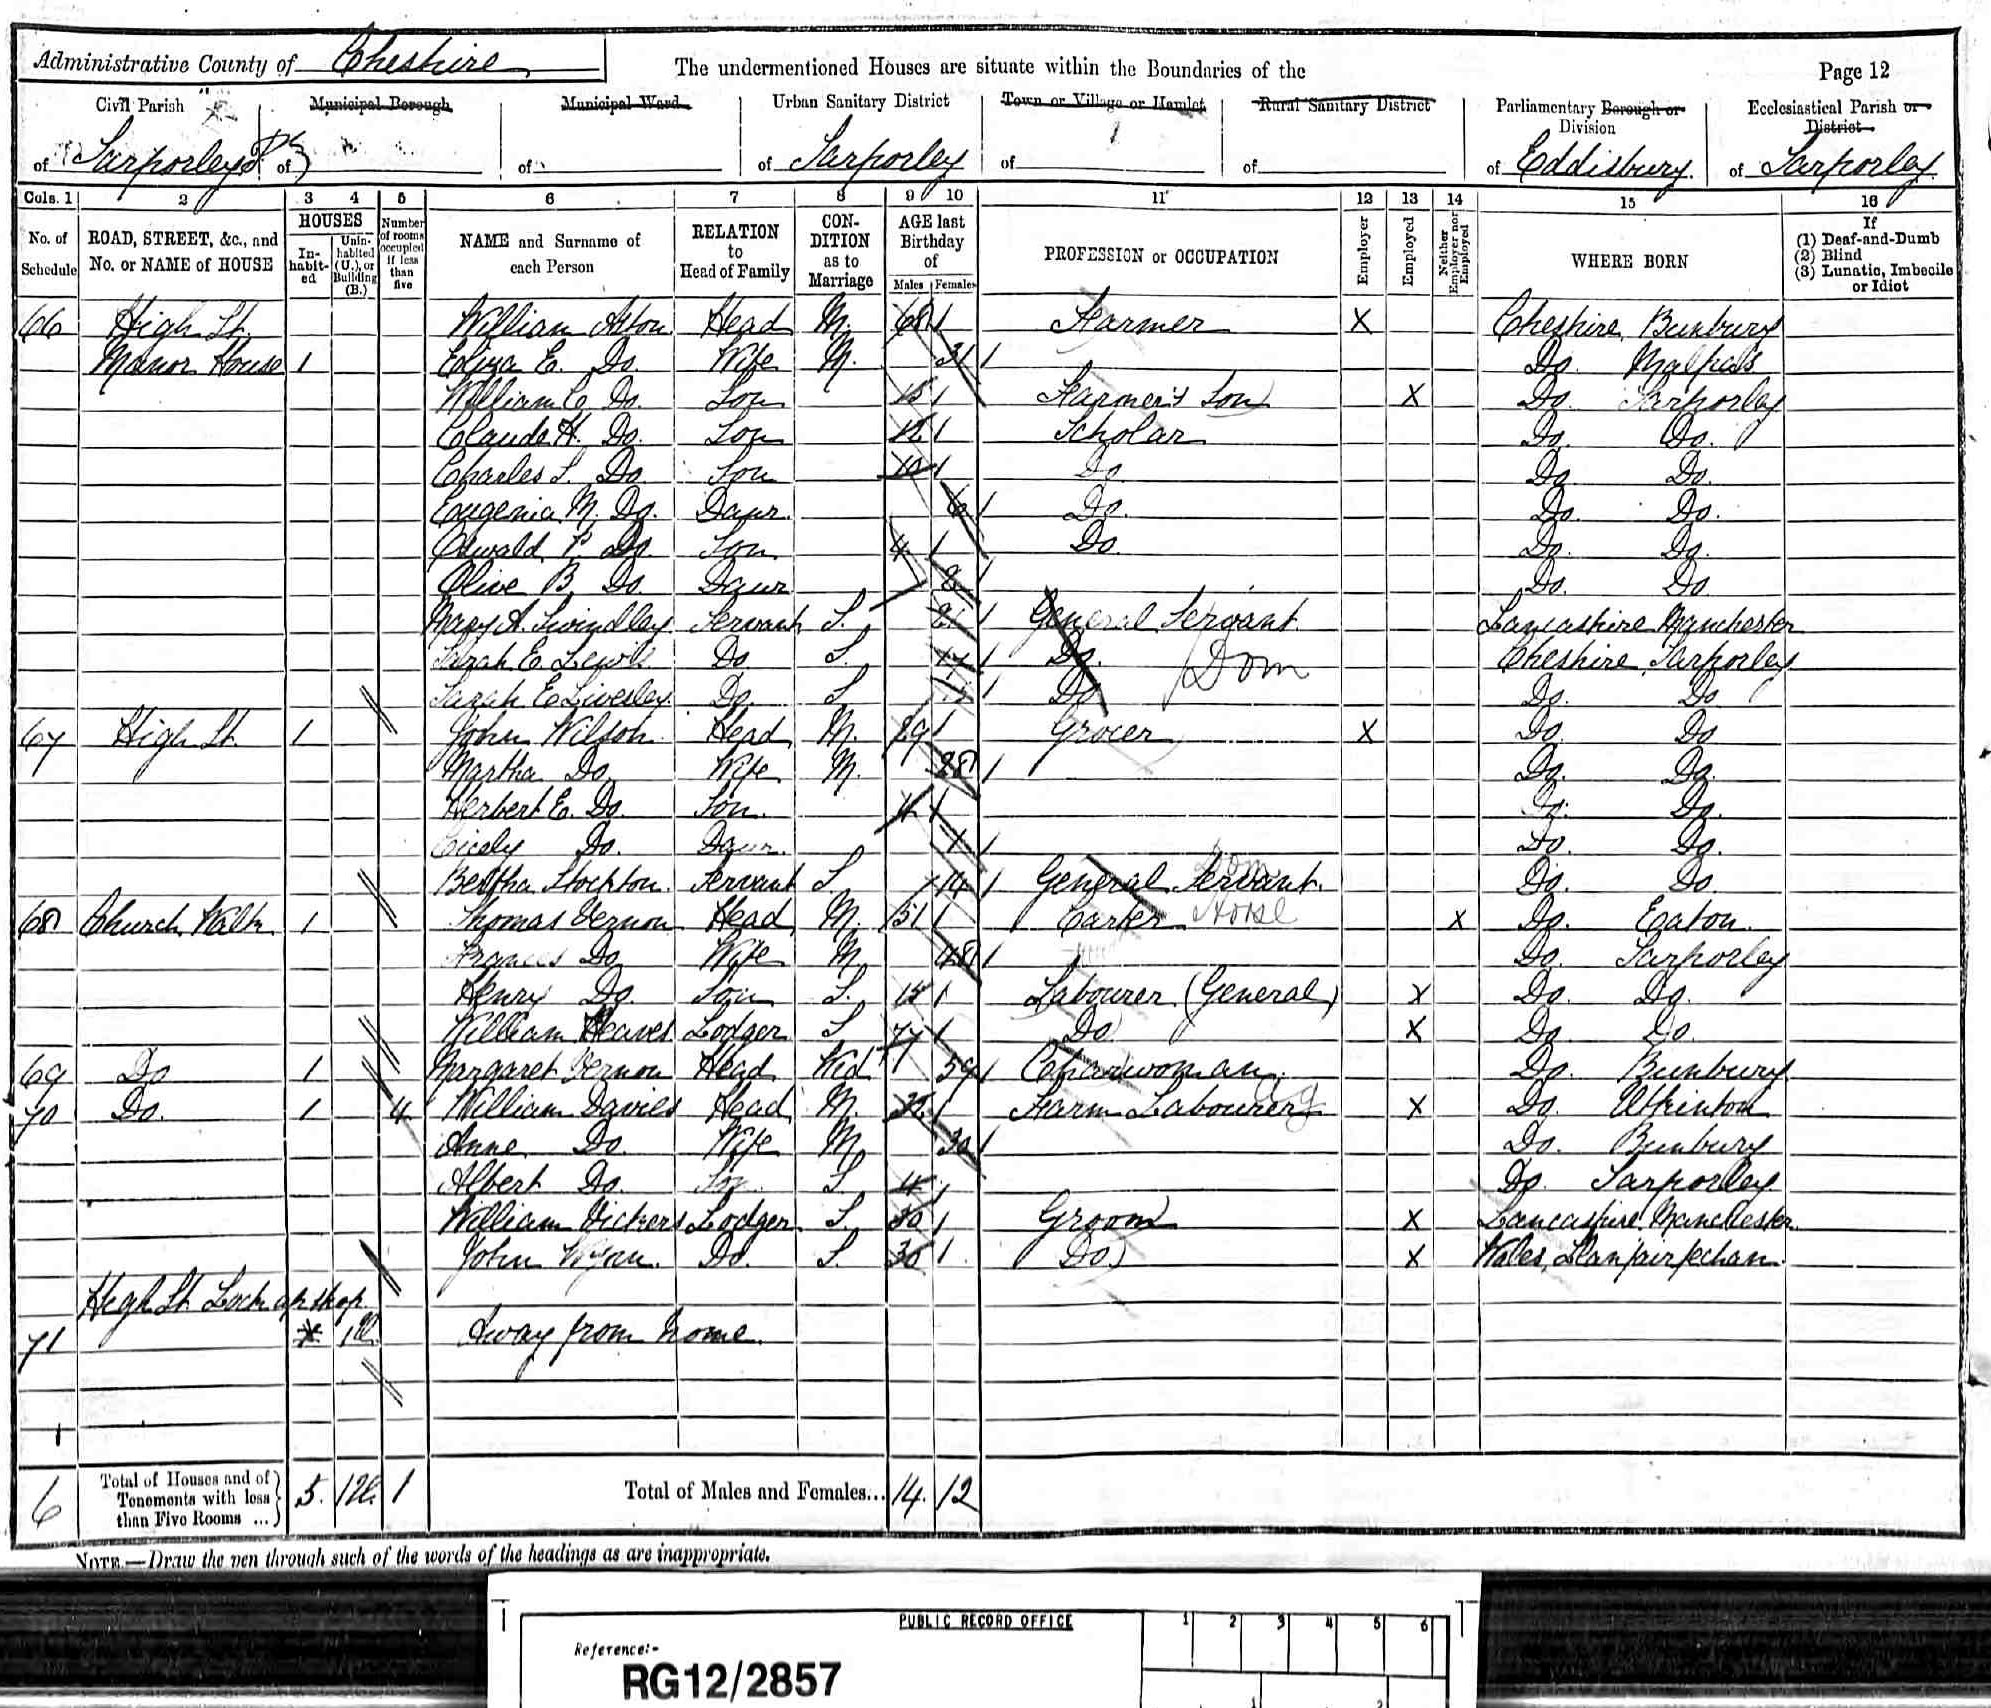 Administrative County of Cheshire
The undermentioned Houses are situate within the Boundaries of the
Page 12
Civil Parish of Tarporley Pt
Municipal Borough of
Municipal Ward of
Urban Sanitary District of Tarporley
Town or Village or Hamlet of
Rural Sanitary District of
Parliamentary Borough or Division of Eddisbury
Ecclesiastical Parish or District of Tarporley
Cols. 1 2 3 4 5 6 7 8 9 10 11 12 13 14 15 16
No. of Schedule
ROAD, STREET, &c., and No. or NAME of HOUSE
HOUSES
In-habit-ed
Unin-habited (U.), or Building (B.)
Number of rooms occupied if less than five
NAME and Surname of each Person
RELATION to Head of Family
CON-DITION as to Marriage
AGE last Birthday of
Males Females
PROFESSION or OCCUPATION
Employer
Employed
Neither Employer nor Employed
WHERE BORN
If (1) Deaf-and-Dumb (2) Blind (3) Lunatic, Imbecile or Idiot
66 High St. William Aston Head M. 68 1 Farmer X Cheshire, Bunbury
Manor House 1 Eliza E. Do. Wife M. 31 1 Do. Malpas
William C. Do. Son 15 1 Farmer's Son X Do. Tarporley
Claude H. Do. Son 12 1 Scholar Do. Do.
Charles S. Do. Son 10 1 Do. Do. Do.
Eugenia M. Do. Daur. 6 1 Do. Do. Do.
Oswald P. Do. Son 4 1 Do. Do. Do.
Olive B. Do. Daur 2 1 Do. Do.
Mary A. Swindley Servant S. 21 1 General Servant Lancashire Manchester
Sarah E. Lewis Do. S. 17 1 Do. Dom Cheshire, Tarporley
Sarah E. Livesley Do. S 1 Do. Do. Do
67 High St. 1 John Wilson Head M. 29 1 Grocer X Do. Do
Martha Do. Wife M. 28 1 Do. Do.
Herbert E. Do. Son. 4 1 Do. Do.
Cicely Do. Daur. 1 1 Do. Do.
Bertha Stockton Servant S 14 1 General Servant Dom Do. Do.
68 Church Walk 1 Thomas Vernon Head M. 51 1 Carter Horse X Do. Eaton
Frances Do. Wife M. 48 1 Do. Tarporley
Henry Do. Son S. 15 1 Labourer (General) X Do. Do.
William Lodger S 77 1 Do. X Do. Do.
69 Do 1 Margaret Vernon Head Wid 59 1 Charwoman Do. Bunbury
70 Do. 1 4 William Davies Head M. 32 1 Farm Labourer Ag X Do. Utkinton
Anne Do. Wife M. 30 1 Do. Bunbury
Albert Do. Son S. 4 1 Do. Tarporley
William Vickers Lodger S. 30 1 Groom X Lancashire, Manchester
John Do. S. 30 1 Do. X Wales, Llanfairfechan
High St. Lock up shop
71 1U Away from home.
6
Total of Houses and of Tenements with less than Five Rooms ... 5. 1U. 1
Total of Males and Females... 14. 12
NOTE.—Draw the pen through such of the words of the headings as are inappropriate.
PUBLIC RECORD OFFICE
1 2 3 4 5 6
Reference:-
RG12/2857
1 2